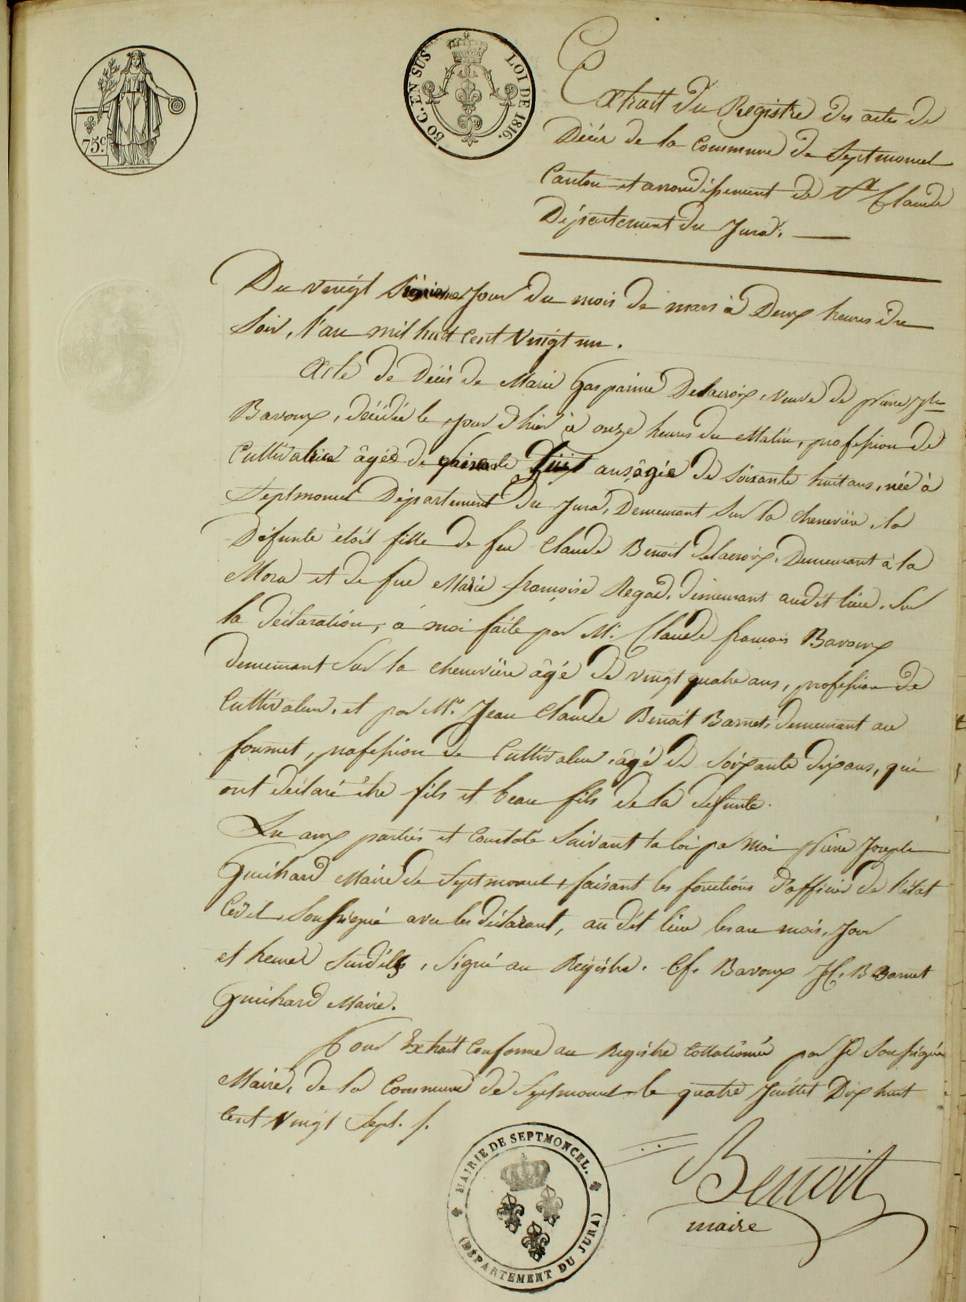 75 c.
50 C. EN SUS LOI DE 1816.
Extrait du Registre des actes de
Décès de la Commune de Septmoncel
Canton et arrondissement de St Claude
Département du Jura.
Du vingt Sixieme Jour du mois de mars à Deux heures du
Soir, l'an mil huit Cent Vingt un.
Acte de Décès de Marie Gasparine Delacroix, veuve de pierre jph
Bavoux, décédée le jour d'hier à onze heures du Matin, profession de
Cultivatrice âgée de ans, âgée de Soixante huit ans, née à
Septmoncel Département du Jura, Demeurant Sur la Chenevière, la
Défunte étoit fille de feu Claude Benoit Delacroix, Demeurant à la
Mora et de feue Marie françoise Regad, Demeurant audit lieu, Sur
la déclaration, à moi faite par Mr. Claude francois Bavoux
demeurant Sur la Chenevière âgé de vingt quatre ans, profession de
Cultivateur, et par Mr. Jean Claude Benoit Barnet, demeurant au
fournet, profession de Cultivateur, agé de Soixante dix ans, qui
ont déclaré être fils et beau fils de la défunte.
Lu aux parties et Constaté Suivant la loi par Moi Pierre Joseph
Guichard Maire de Septmoncel, faisant les fonctions d'officier de l'état
Civil, Soussigné avec les déclarant, au dit lieu les an mois, Jour
et heures Susdits, Signé au Registre. Cf. Bavoux JC. B Barnet
Guichard Maire.
Pour Extrait Conforme au Registre Collationné par Je Soussigné
Maire, de la Commune de Septmoncel le quatre Juillet Dix huit
Cent Vingt Sept. /.
MAIRIE DE SEPTMONCEL.
(DÉPARTEMENT DU JURA)
Benoit
maire